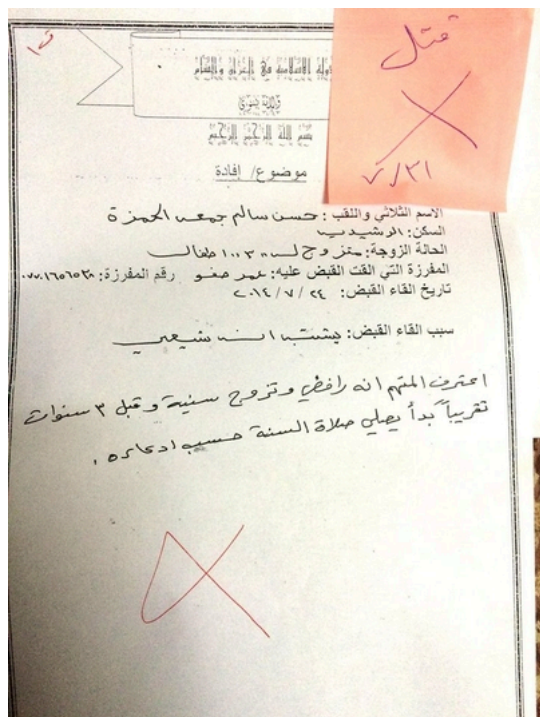 قتل
٧/٣١
دولة الاسلامية في العراق والشام
ولاية نينوى
بسم الله الرحمن الرحيم
موضوع/ إفادة
الاسم الثلاثي واللقب: حسن سالم جمعه الحمزة
السكن: الرشيدية
الحالة الزوجة: متزوج لديه ٣ اطفال
المفرزة التي القت القبض عليه: عمر صفو رقم المفرزة:
تاريخ القاء القبض: ٢٤ / ٧ / ٢٠١٤
سبب القاء القبض: يشتبه انه شيعي
اعترف المتهم انه رافضي وتزوج سنية وقبل ٣ سنوات
تقريباً بدأ يصلي صلاة السنة حسب ادعائه .